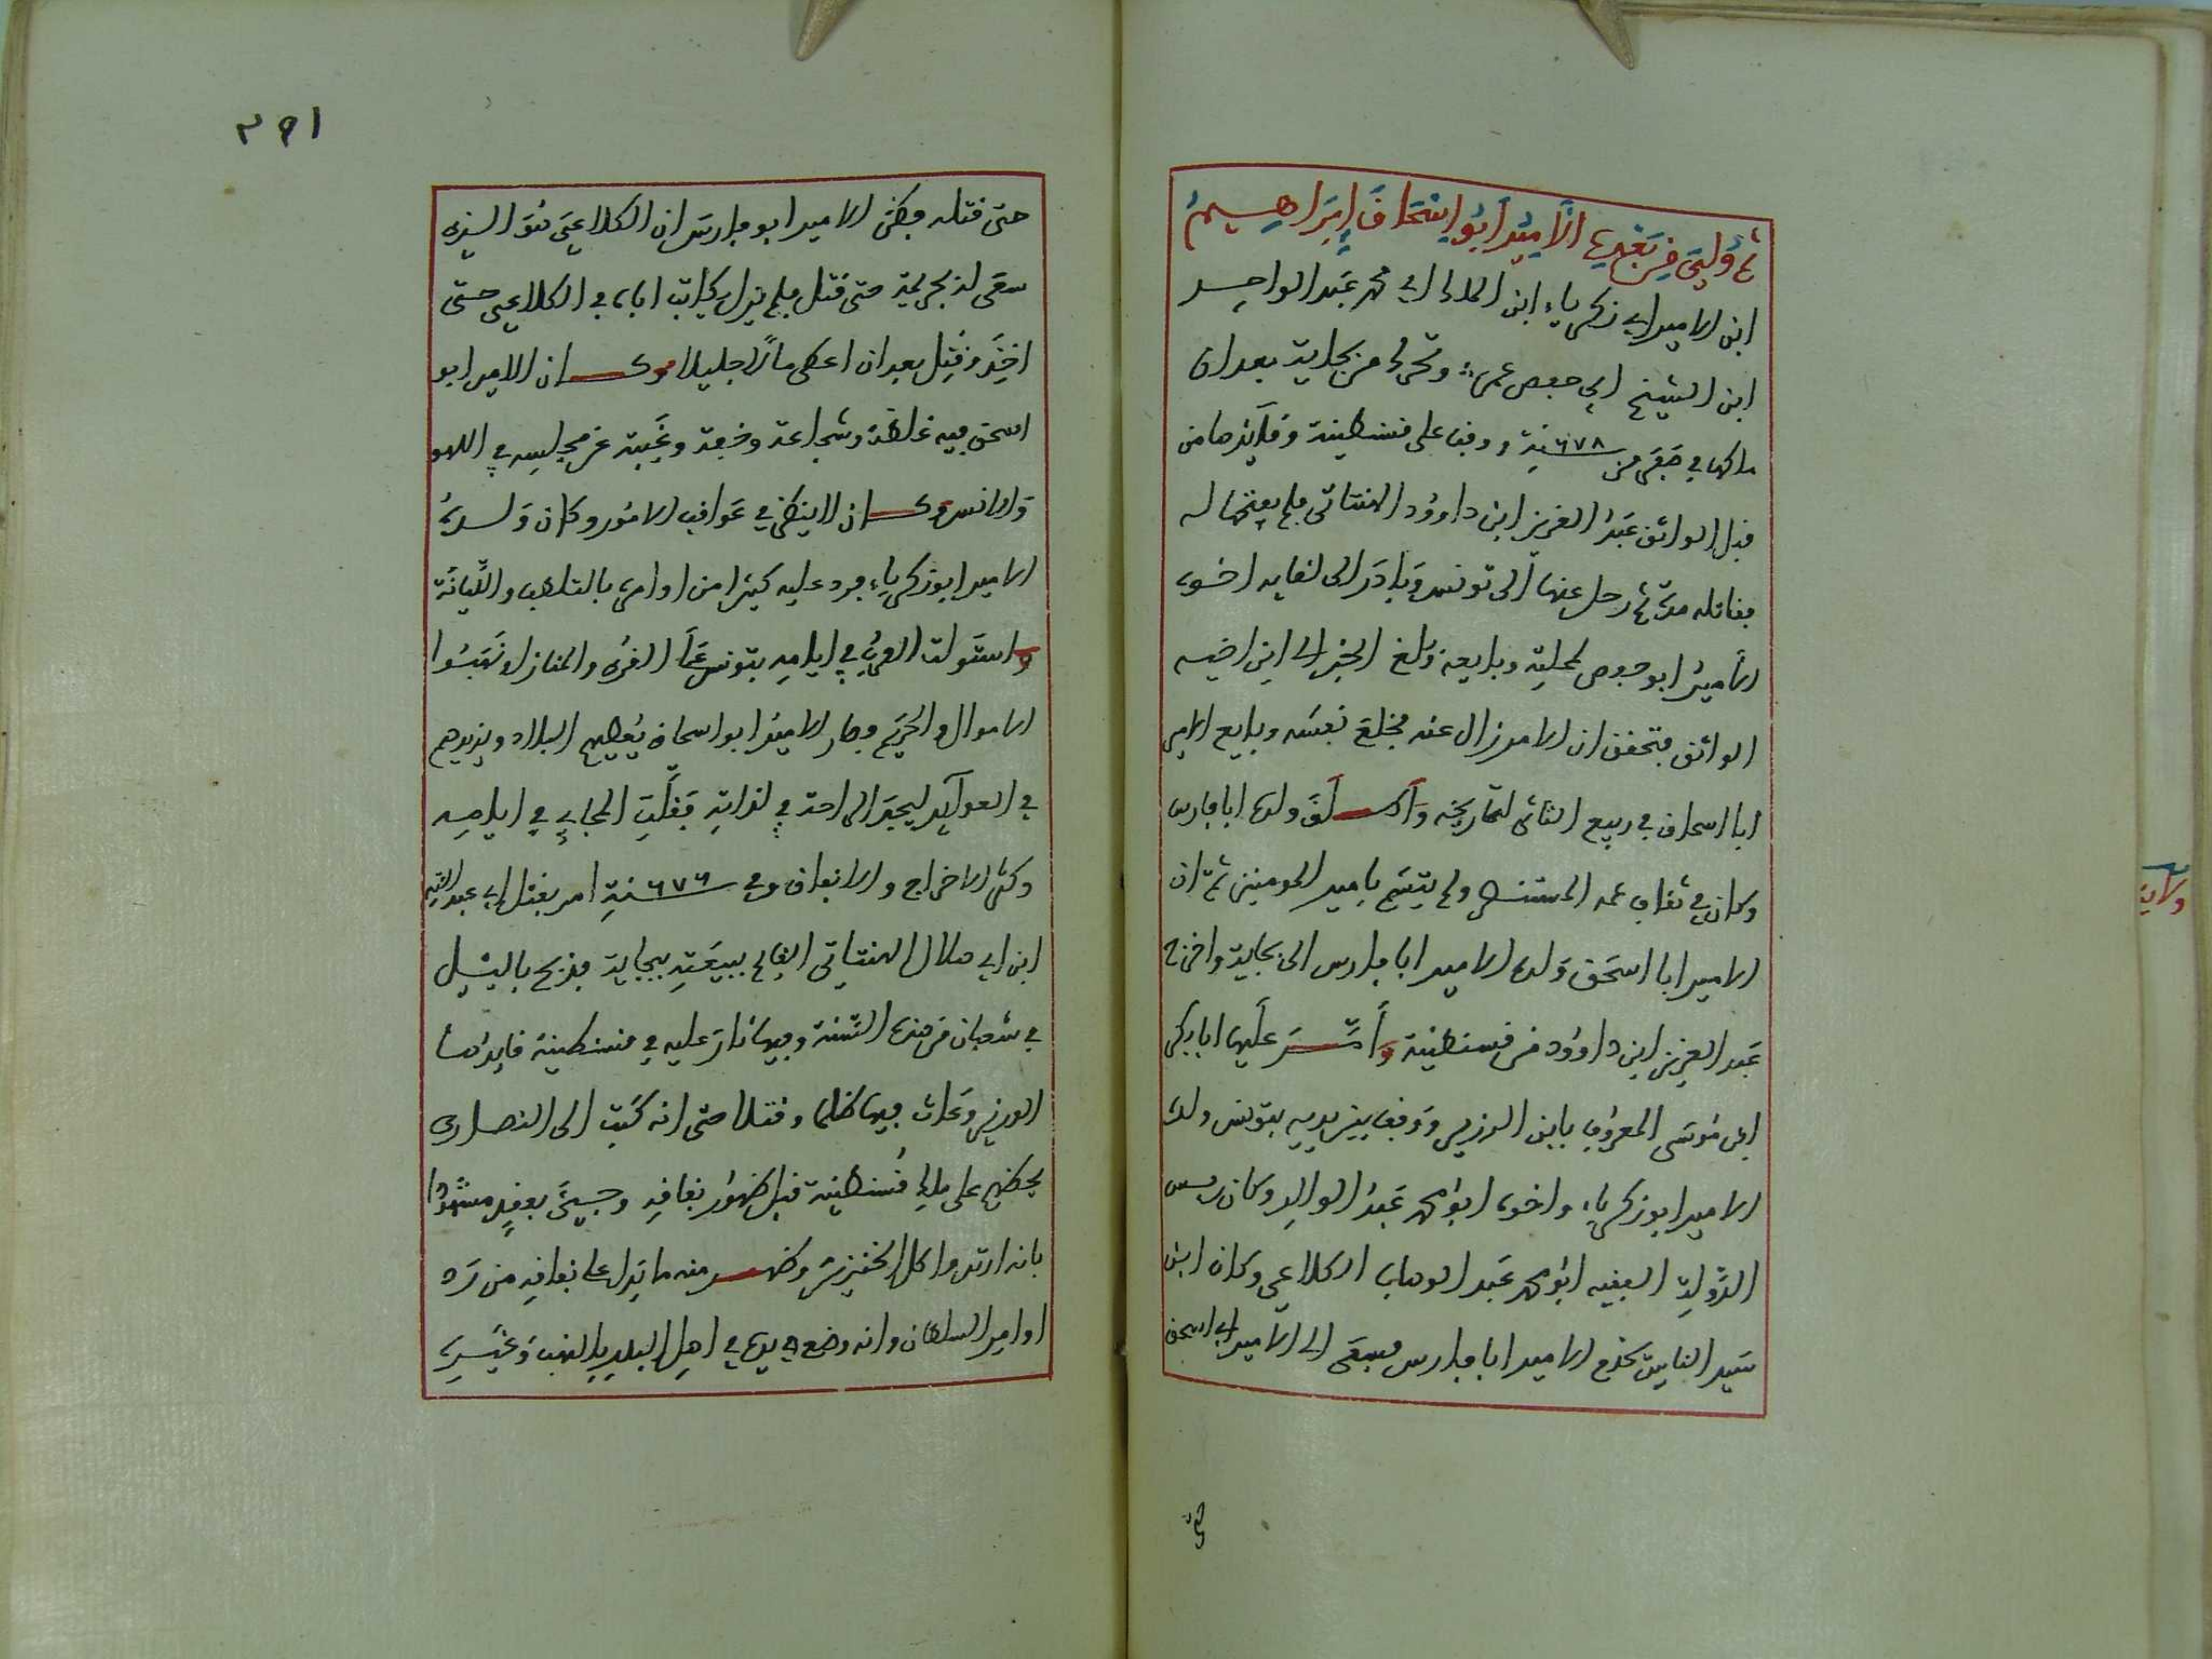 ثم ولي من بعده الأمير أبو إسحاق إبراهيم
ابن الامير ابي زكرياء ابن المولى ابي محمد عبد الواحد
ابن الشيخ ابي حفص عمر وتحرك من بجاية بعد ان
ملكها في صفر من سنة ٦٧٨ ووقف على قسنطينة وقايدها من
قبل الواثق عبد العزيز ابن داوود الهنتاتي فلم يفتحها له
فقاتله مدة ثم رحل عنها الى تونس وبادر الى لقايه اخوه
الأمير ابو حفص لمحلته وبايعه وبلغ الخبر الى ابن اخيه
الواثق فتحقق ان الامر زال عنه فخلع نفسه وبايع الامير
ابا اسحاق في ربيع الثاني لتاريخه وأطلق ولده ابا فارس
وكان في ثقاف عمه المستنصر ولم يتسم بامير المومنين ثم ان
الامير ابا اسحق ولده الامير ابا فارس الى بجاية واخرج
عبد العزيز ابن داوود من قسنطينة وأمّر عليها ابا بكر
ابن موسى المعروف بابن الوزير ووقف بين يديه بتونس ولده
الامير ابو زكرياء واخوه ابو محمد عبد الواحد وكان رييس
الدولة الفقيه ابو محمد عبد الوهاب الكلاعي وكان ابن
سيد الناس يخدم الامير ابا فارس فسعى الى الامير ابي اسحق
حتى
٢٩١
حتى قتله فظن الامير ابو فارس ان الكلاعي هو الذي
سعى لذبحريمة حتى قتل فلم يزل يكاتب اباه في الكلاعي حتى
اخذ وقتل بعد ان اعطى مالا جليلا وكان الامير ابو
اسحق فيه غلظة وشجاعة وخفة وغيبة عن مجلسه في اللهو
والانس وكان لا ينظر في عواقب الامور وكان ولده
الامير ابو زكرياء يرد عليه كثيرا من اوامره بالتلطف والليانة
واستولت العرب في ايامه بتونس على القرى والمنازل ونهبوا
الاموال والحريم وصار الامير ابو اسحاق يعطيهم البلاد ويزيدهم
في العوايد ليجد الراحة في لذاته فقلت المجابي في ايامه
وكثر الاخراج والانفاق وفي سنة ٦٧٩ امر بقتل ابي عبد الله
ابن ابي هلال الهنتاتي القايم ببيعته ببجاية فذبح بالليل
في شعبان من هذه السنة وفيها ثار عليه في قسنطينة قايدها
ابن الوزير وعاث فيها ظلما وقتلا حتى انه كتب الى النصارى
يحضهم على ملك قسنطينة قبل ظهور نفاقه وجيء بعقد مشهود
بانه ارتد واكل الخنزير وظهر منه ما يدل على نفاقه من رد
اوامر السلطان وانه وضع يده في اهل البلد بالنهب وغيره
ولاية